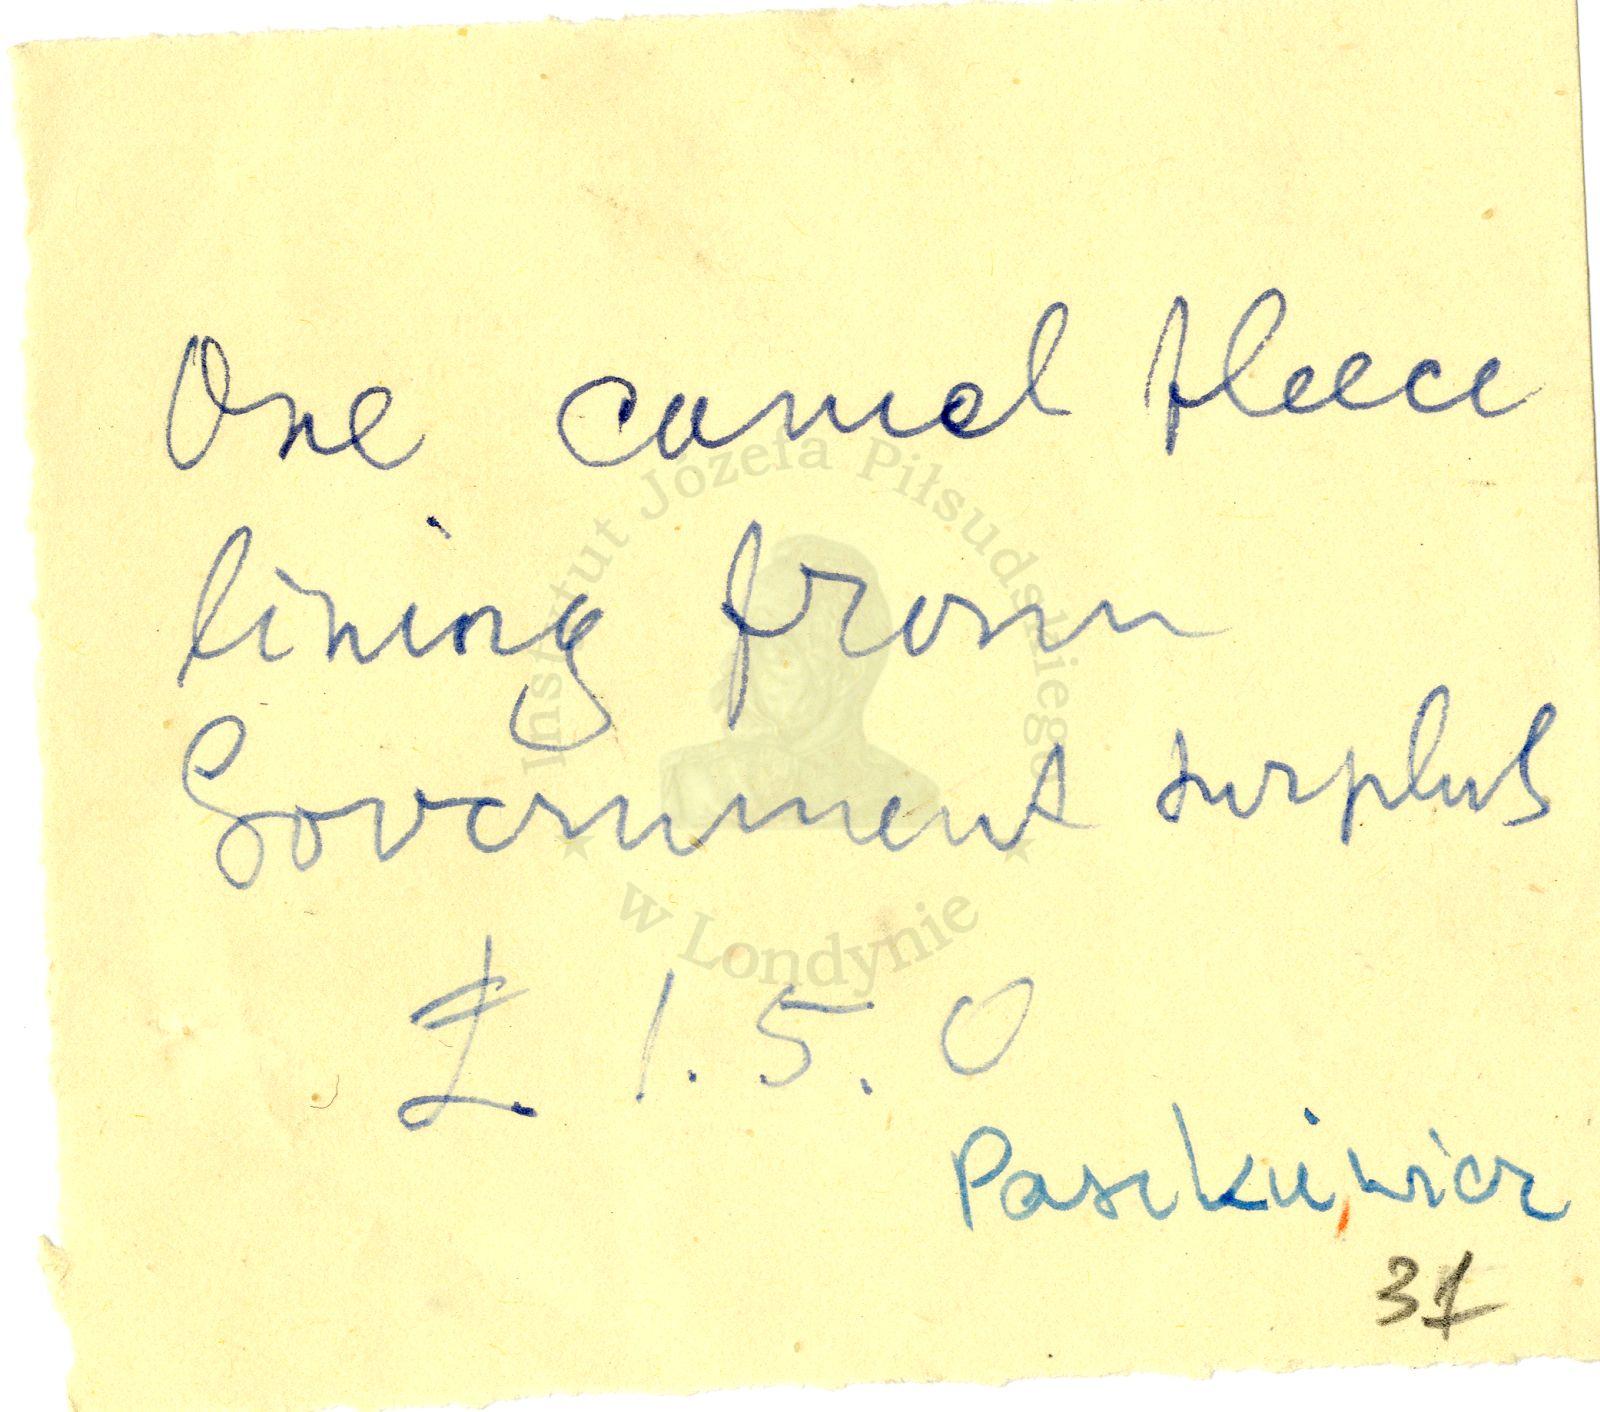 One camel fleece
lining from
Government surplus
£ 1.5.0
Paszkiewicz
31
Instytut Józefa Piłsudskiego
w Londynie